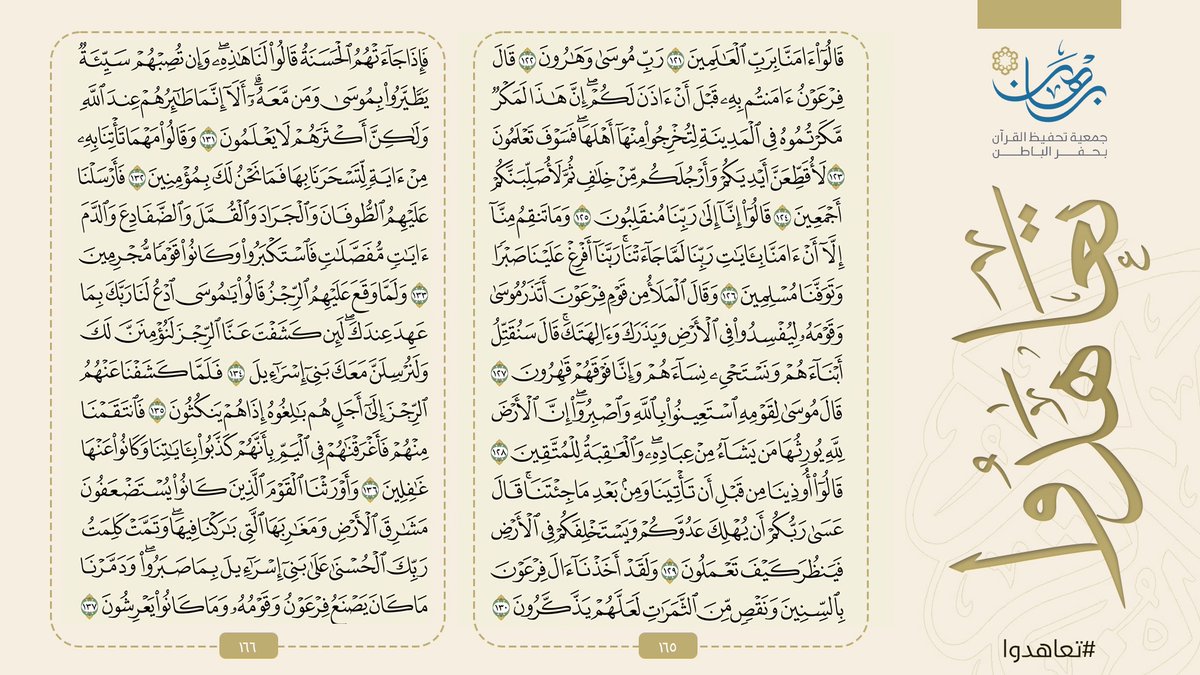 برهان
جمعية تحفيظ القرآن
بحفر الباطن
تعاهدوا
#تعاهدوا
قَالُوٓا۟ ءَامَنَّا بِرَبِّ ٱلْعَٰلَمِينَ ١٢١ رَبِّ مُوسَىٰ وَهَٰرُونَ ١٢٢ قَالَ
فِرْعَوْنُ ءَامَنتُم بِهِۦ قَبْلَ أَنْ ءَاذَنَ لَكُمْ ۖ إِنَّ هَٰذَا لَمَكْرٌ
مَّكَرْتُمُوهُ فِى ٱلْمَدِينَةِ لِتُخْرِجُوا۟ مِنْهَآ أَهْلَهَا ۖ فَسَوْفَ تَعْلَمُونَ
١٢٣ لَأُقَطِّعَنَّ أَيْدِيَكُمْ وَأَرْجُلَكُم مِّنْ خِلَٰفٍ ثُمَّ لَأُصَلِّبَنَّكُمْ
أَجْمَعِينَ ١٢٤ قَالُوٓا۟ إِنَّآ إِلَىٰ رَبِّنَا مُنقَلِبُونَ ١٢٥ وَمَا تَنقِمُ مِنَّآ
إِلَّآ أَنْ ءَامَنَّا بِـَٔايَٰتِ رَبِّنَا لَمَّا جَآءَتْنَا ۚ رَبَّنَآ أَفْرِغْ عَلَيْنَا صَبْرًا
وَتَوَفَّنَا مُسْلِمِينَ ١٢٦ وَقَالَ ٱلْمَلَأُ مِن قَوْمِ فِرْعَوْنَ أَتَذَرُ مُوسَىٰ
وَقَوْمَهُۥ لِيُفْسِدُوا۟ فِى ٱلْأَرْضِ وَيَذَرَكَ وَءَالِهَتَكَ ۚ قَالَ سَنُقَتِّلُ
أَبْنَآءَهُمْ وَنَسْتَحْىِۦ نِسَآءَهُمْ وَإِنَّا فَوْقَهُمْ قَٰهِرُونَ ١٢٧
قَالَ مُوسَىٰ لِقَوْمِهِ ٱسْتَعِينُوا۟ بِٱللَّهِ وَٱصْبِرُوٓا۟ ۖ إِنَّ ٱلْأَرْضَ
لِلَّهِ يُورِثُهَا مَن يَشَآءُ مِنْ عِبَادِهِۦ ۖ وَٱلْعَٰقِبَةُ لِلْمُتَّقِينَ ١٢٨
قَالُوٓا۟ أُوذِينَا مِن قَبْلِ أَن تَأْتِيَنَا وَمِنۢ بَعْدِ مَا جِئْتَنَا ۚ قَالَ
عَسَىٰ رَبُّكُمْ أَن يُهْلِكَ عَدُوَّكُمْ وَيَسْتَخْلِفَكُمْ فِى ٱلْأَرْضِ
فَيَنظُرَ كَيْفَ تَعْمَلُونَ ١٢٩ وَلَقَدْ أَخَذْنَآ ءَالَ فِرْعَوْنَ
بِٱلسِّنِينَ وَنَقْصٍ مِّنَ ٱلثَّمَرَٰتِ لَعَلَّهُمْ يَذَّكَّرُونَ ١٣٠
١٦٥
فَإِذَا جَآءَتْهُمُ ٱلْحَسَنَةُ قَالُوا۟ لَنَا هَٰذِهِۦ ۖ وَإِن تُصِبْهُمْ سَيِّئَةٌ
يَطَّيَّرُوا۟ بِمُوسَىٰ وَمَن مَّعَهُۥٓ ۗ أَلَآ إِنَّمَا طَٰٓئِرُهُمْ عِندَ ٱللَّهِ
وَلَٰكِنَّ أَكْثَرَهُمْ لَا يَعْلَمُونَ ١٣١ وَقَالُوا۟ مَهْمَا تَأْتِنَا بِهِۦ
مِنْ ءَايَةٍ لِّتَسْحَرَنَا بِهَا فَمَا نَحْنُ لَكَ بِمُؤْمِنِينَ ١٣٢ فَأَرْسَلْنَا
عَلَيْهِمُ ٱلطُّوفَانَ وَٱلْجَرَادَ وَٱلْقُمَّلَ وَٱلضَّفَادِعَ وَٱلدَّمَ
ءَايَٰتٍ مُّفَصَّلَٰتٍ فَٱسْتَكْبَرُوا۟ وَكَانُوا۟ قَوْمًا مُّجْرِمِينَ
١٣٣ وَلَمَّا وَقَعَ عَلَيْهِمُ ٱلرِّجْزُ قَالُوا۟ يَٰمُوسَى ٱدْعُ لَنَا رَبَّكَ بِمَا
عَهِدَ عِندَكَ ۖ لَئِن كَشَفْتَ عَنَّا ٱلرِّجْزَ لَنُؤْمِنَنَّ لَكَ
وَلَنُرْسِلَنَّ مَعَكَ بَنِىٓ إِسْرَٰٓءِيلَ ١٣٤ فَلَمَّا كَشَفْنَا عَنْهُمُ
ٱلرِّجْزَ إِلَىٰٓ أَجَلٍ هُم بَٰلِغُوهُ إِذَا هُمْ يَنكُثُونَ ١٣٥ فَٱنتَقَمْنَا
مِنْهُمْ فَأَغْرَقْنَٰهُمْ فِى ٱلْيَمِّ بِأَنَّهُمْ كَذَّبُوا۟ بِـَٔايَٰتِنَا وَكَانُوا۟ عَنْهَا
غَٰفِلِينَ ١٣٦ وَأَوْرَثْنَا ٱلْقَوْمَ ٱلَّذِينَ كَانُوا۟ يُسْتَضْعَفُونَ
مَشَٰرِقَ ٱلْأَرْضِ وَمَغَٰرِبَهَا ٱلَّتِى بَٰرَكْنَا فِيهَا ۖ وَتَمَّتْ كَلِمَتُ
رَبِّكَ ٱلْحُسْنَىٰ عَلَىٰ بَنِىٓ إِسْرَٰٓءِيلَ بِمَا صَبَرُوا۟ ۖ وَدَمَّرْنَا
مَا كَانَ يَصْنَعُ فِرْعَوْنُ وَقَوْمُهُۥ وَمَا كَانُوا۟ يَعْرِشُونَ ١٣٧
١٦٦